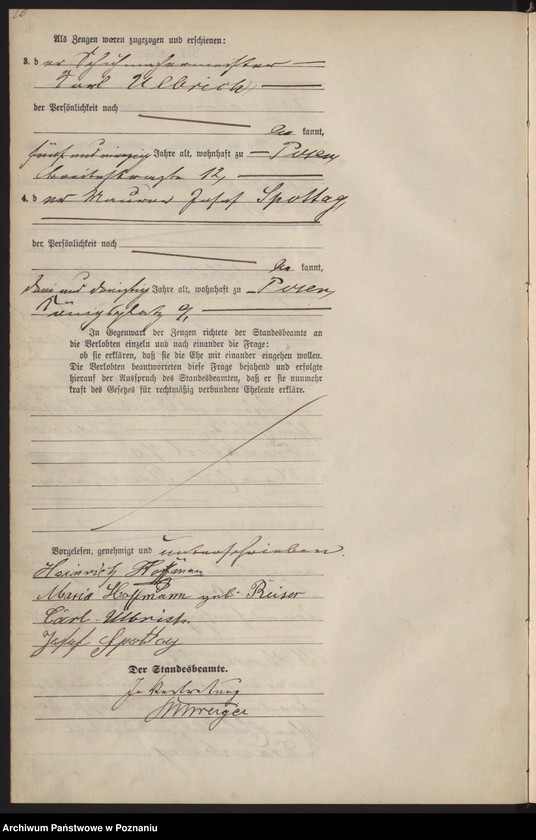 Als Zeugen waren zugezogen und erschienen:
3. der Schuhmachermeister
Karl Ulbrich,
der Persönlichkeit nach
be kannt,
fünf und vierzig Jahre alt, wohnhaft zu Posen,
Breitestraße 12,
4. der Maurer Josef Spottag,
der Persönlichkeit nach
be kannt,
und dreißig Jahre alt, wohnhaft zu Posen,
Königsplatz 9,
In Gegenwart der Zeugen richtete der Standesbeamte an
die Verlobten einzeln und nach einander die Frage:
ob sie erklären, daß sie die Ehe mit einander eingehen wollen.
Die Verlobten beantworteten diese Frage bejahend und erfolgte
hierauf der Ausspruch des Standesbeamten, daß er sie nunmehr
kraft des Gesetzes für rechtmäßig verbundene Eheleute erkläre.
Vorgelesen, genehmigt und unterschrieben.
Heinrich Hoffmann
Maria Hoffmann geb. Reiser
Carl Ulbrich.
Josef Spottag
Der Standesbeamte.
In Vertretung
Archiwum Państwowe w Poznaniu